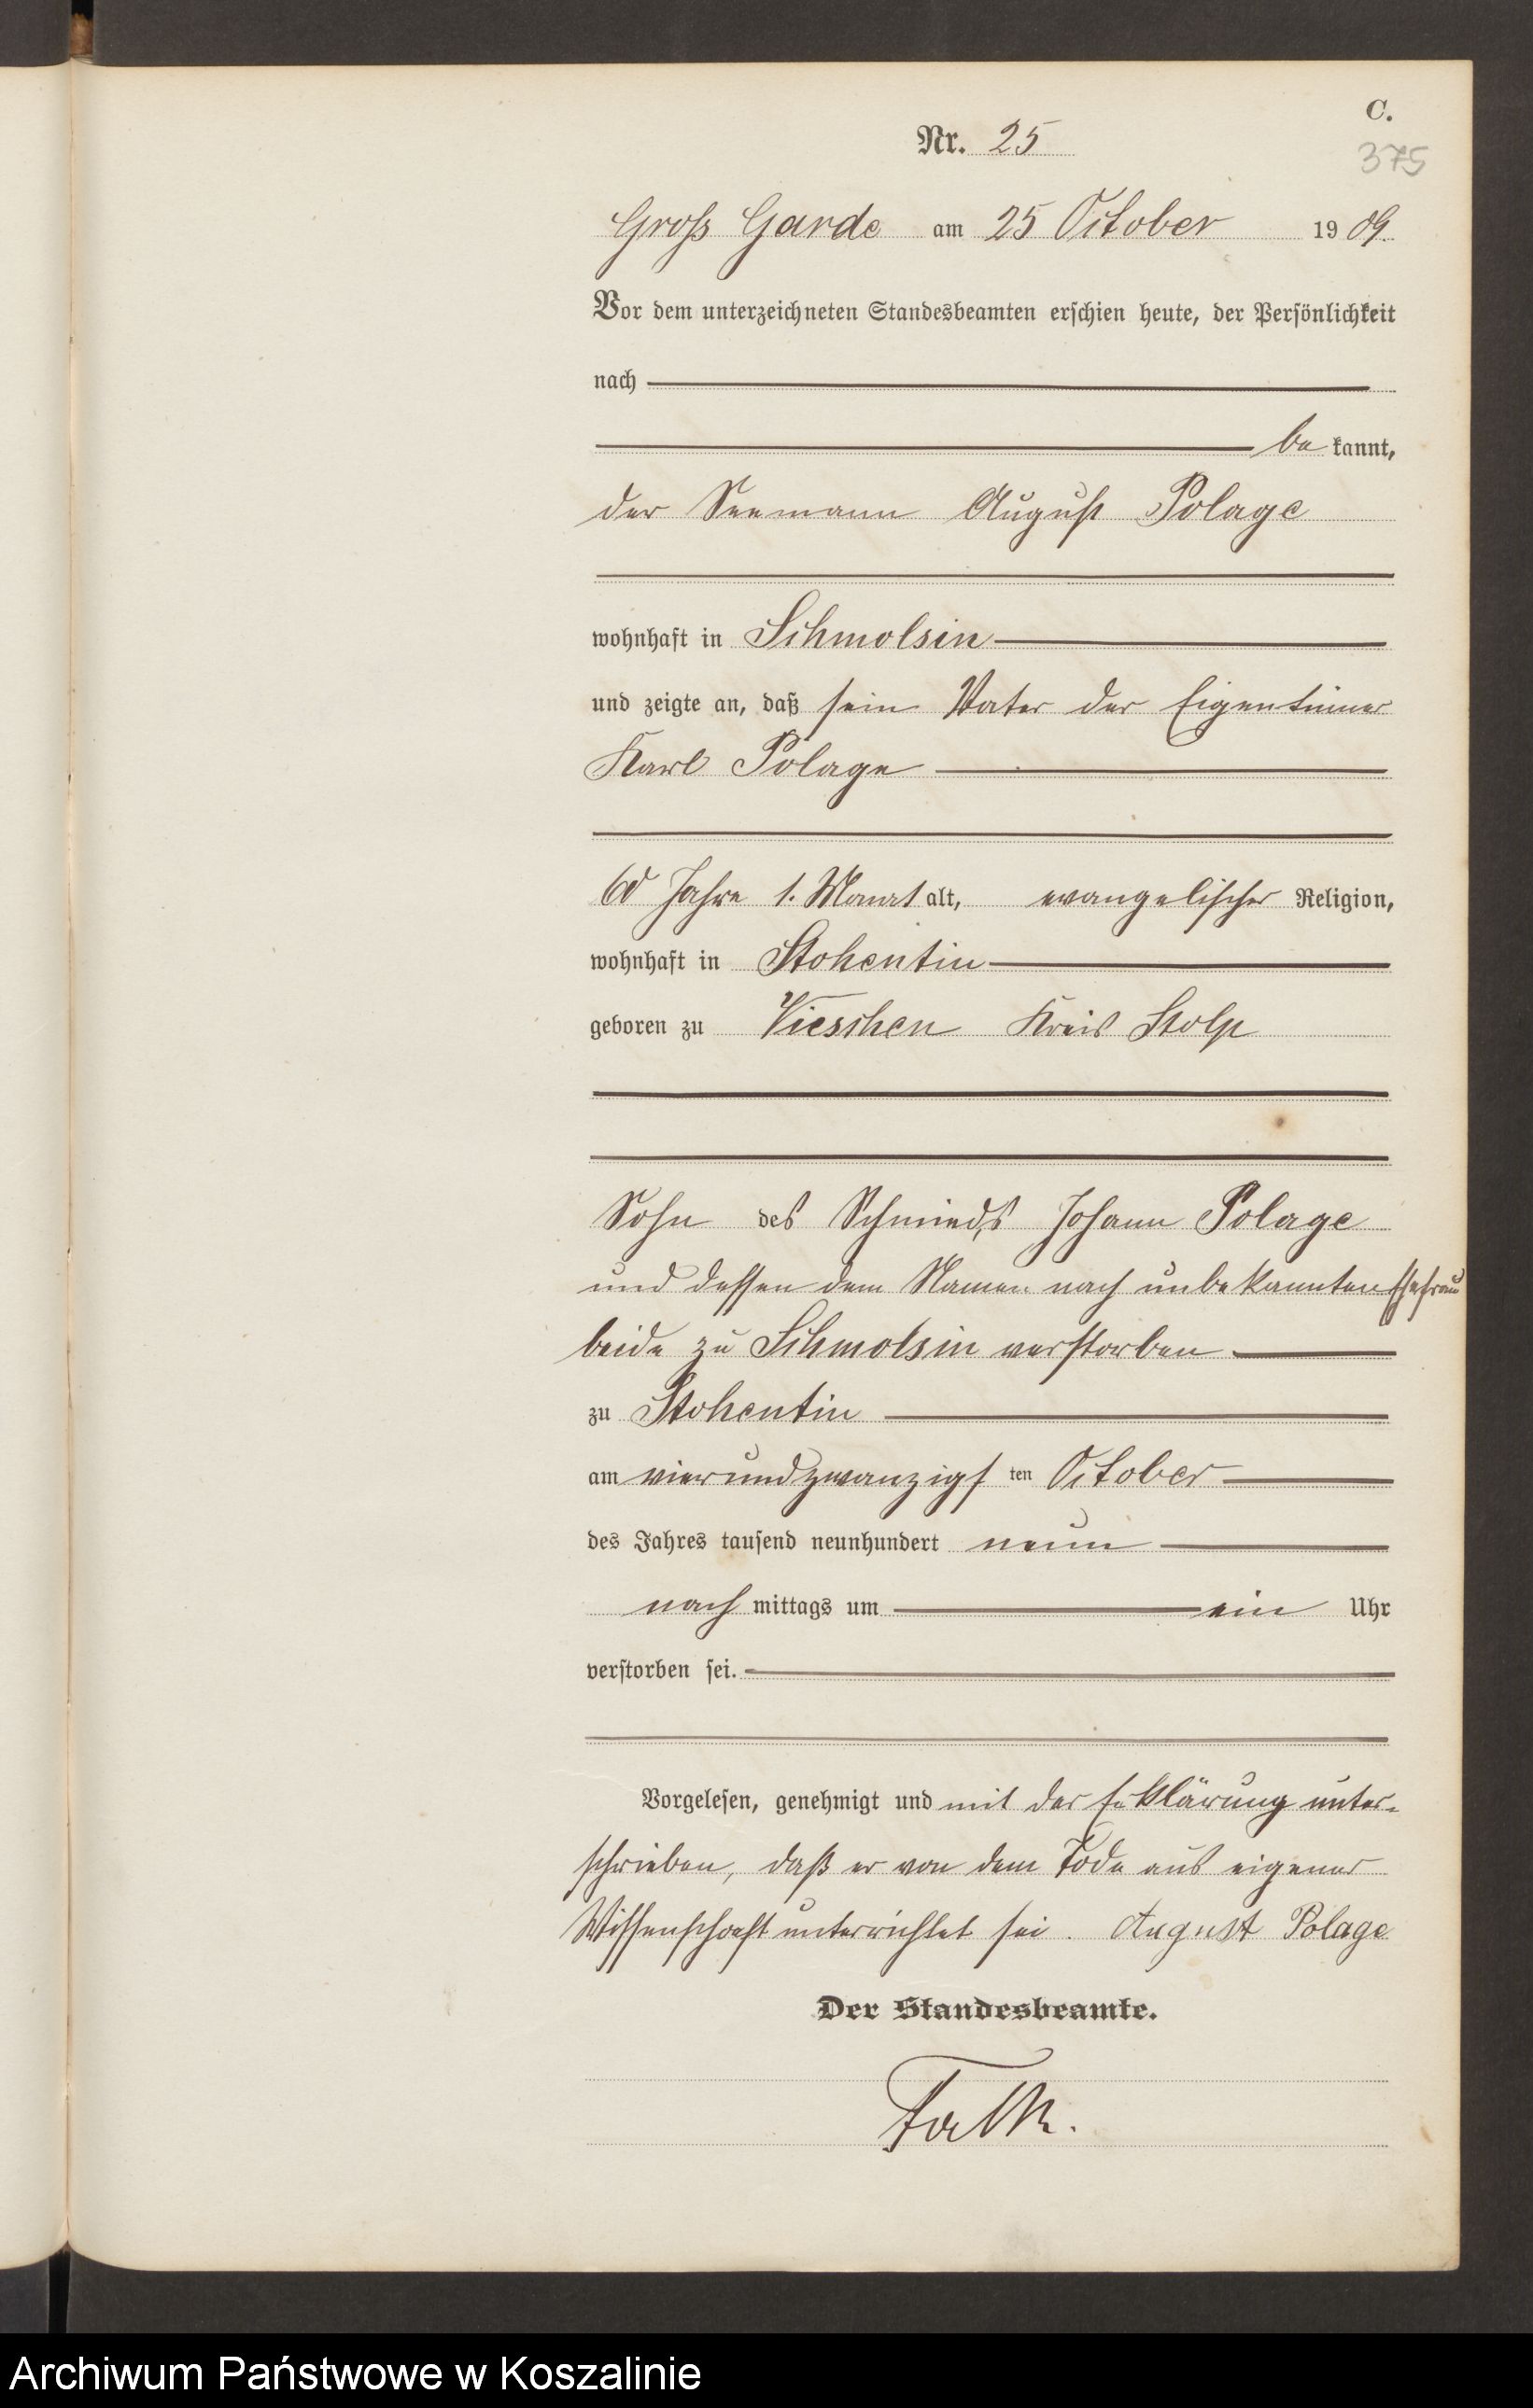 C.
Nr. 25
375
Groß Garde am 25 October 1909.
Vor dem unterzeichneten Standesbeamten erschien heute, der Persönlichkeit
nach
be kannt,
der Seemann August Polage
wohnhaft in Schmolsin
und zeigte an, daß sein Vater der Eigentümer
Karl Polage
60 Jahre 1. Monat alt, evangelischer Religion,
wohnhaft in Stohentin
geboren zu Vieschen Kreis Stolp
Sohn des Schmieds Johann Polage
und dessen dem Namen nach unbekannten Ehefrau
beide zu Schmolsin verstorben
zu Stohentin
am vierundzwanzigsten October
des Jahres tausend neunhundert neun
nach mittags um ein Uhr
verstorben sei.
Vorgelesen, genehmigt und mit der Erklärung unter-
schrieben, daß er von dem Tode aus eigener
Wissenschaft unterrichtet sei. August Polage
Der Standesbeamte.
Falk.
Archiwum Państwowe w Koszalinie